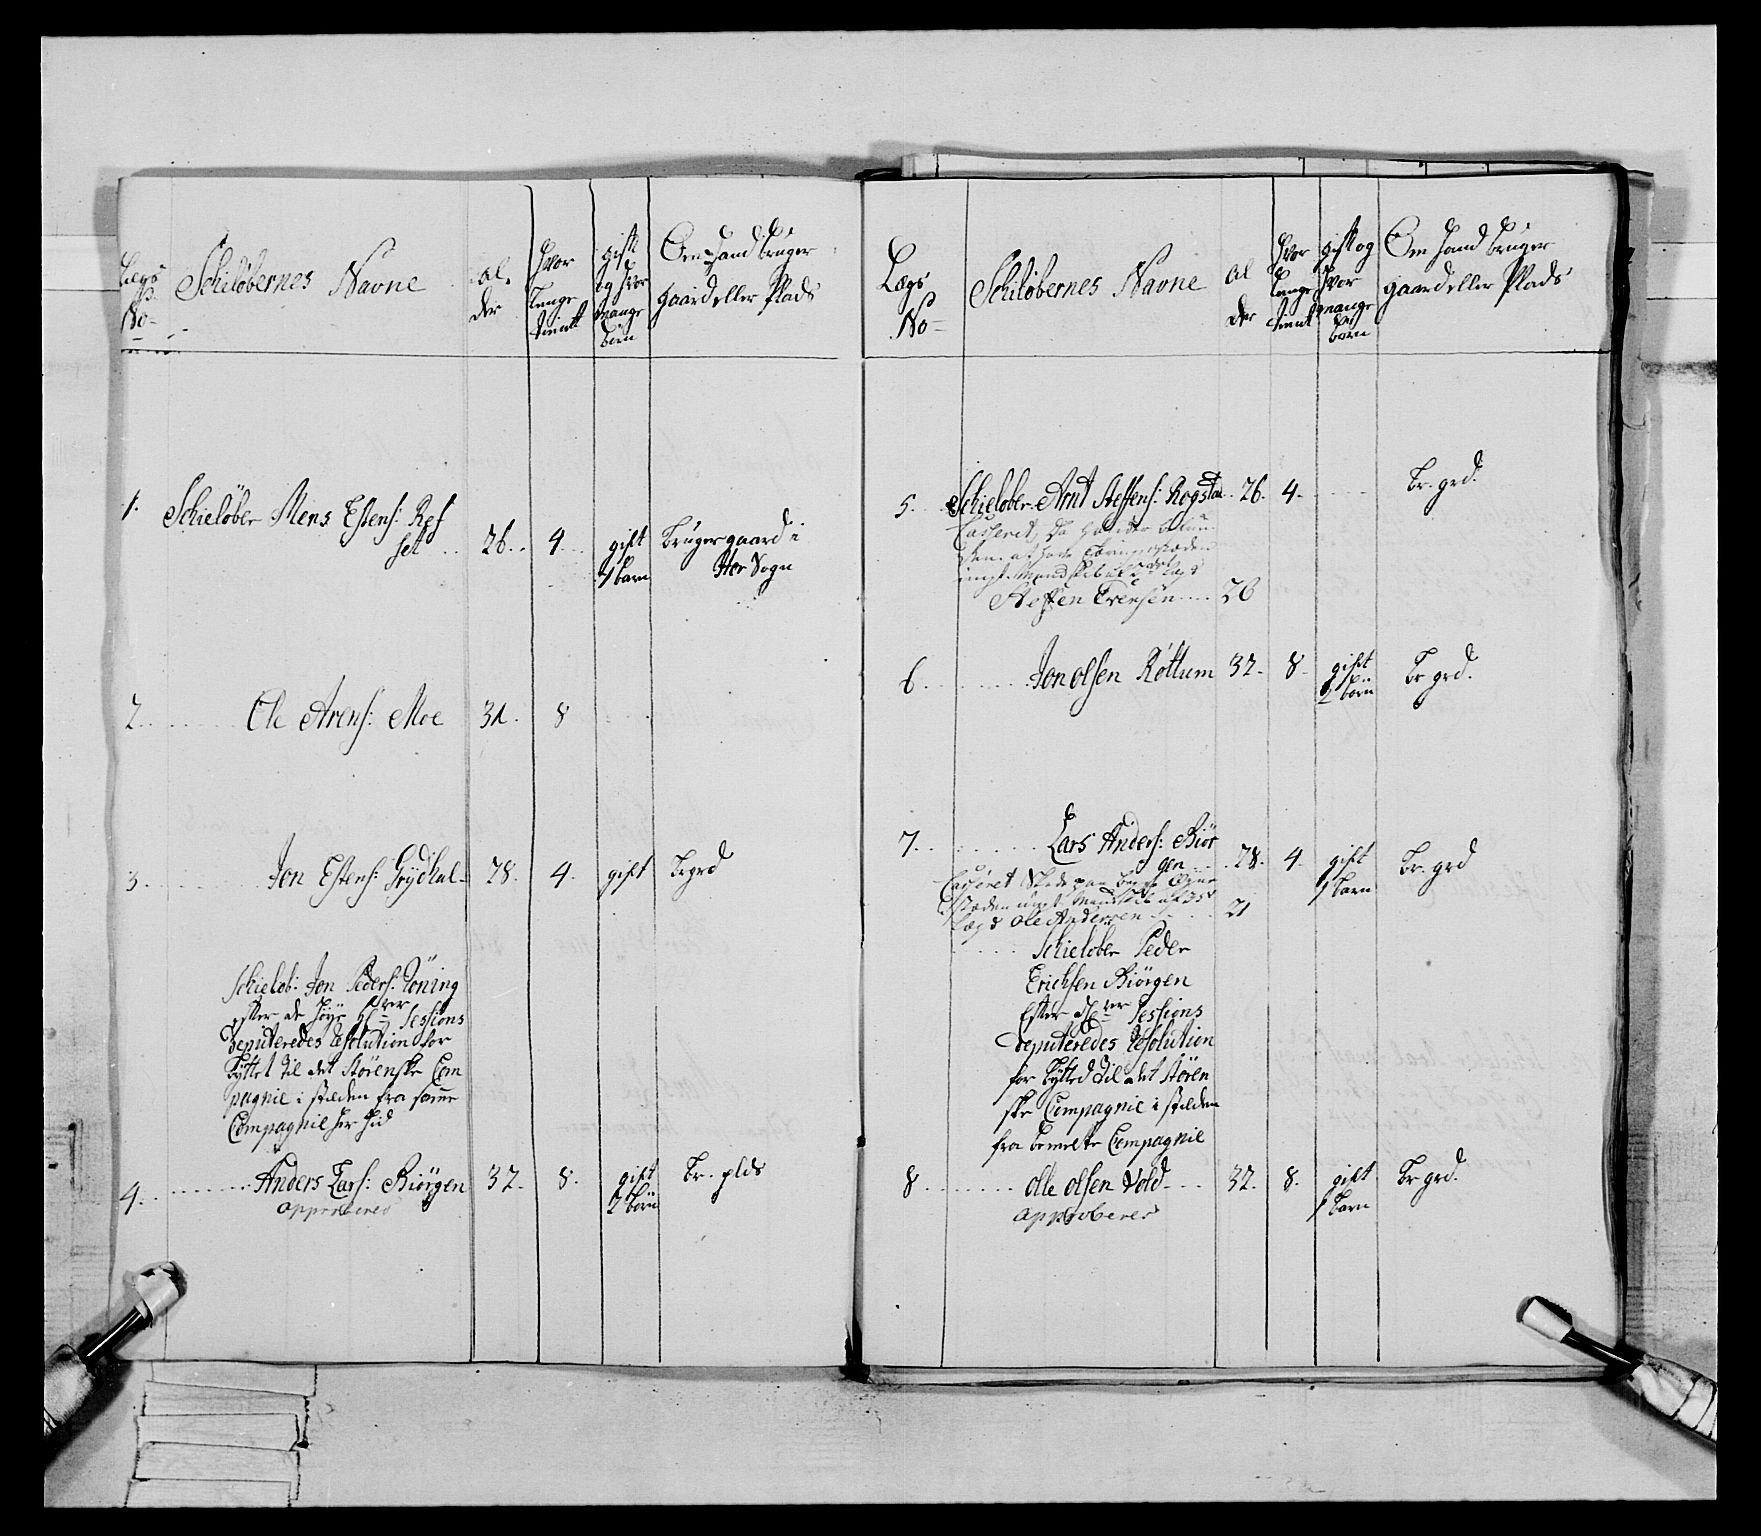 Lægs
No
Schiløbernes Navne
Al
der
hvor
lenge
tient
gift
og hvor
mange
børn
Om hand bruger
gaard eller Plads
1. Schieløber Mens Estens: Ref
set 26. 4. gift Bruger gaard i
1 barn Hør Sogn
2. Ole Arens: Moe 31. 8
3. Jon Estens: Grydhal 28. 4. gift Br grd
Schieløb: Jon Peders: Töning
efter de høye Sessions
Deputeredes Resolution for
byttet til det Størenske Com
pagnie i stæden fra samme
Compagnie her hid
4. Anders Lars: Biörgen 32. 8. gift Br. plds
2 børn
approberes
Lægs
No
Schiløbernes Navne
Al
der
hvor
lange
tient
gift og
hvor
mange
børn
Om hand bruger
gaard eller Plads
5. Schieløber Arnt Steffens: Rogstad 26. 4. Br. grd.
Casseret, da
i
Steffen Evensen 26
6. Jon olsen Røttum 32. 8. gift Br grd.
2 børn
7. Lars Anders: Biör
gen 28. 4. gift Br. grd
1 barn
Casseret
Læg Ole Andersen 21
Schieløber Peder
Erichsen Biörgen
Efter Sessions
Deputeredes Resolution
for bytted til det Stören
ske Compagnie i stæden
fra bemelte Compagnie
8 olle olsen Vold 32. 8. gift Br grd.
1 barn
approberes